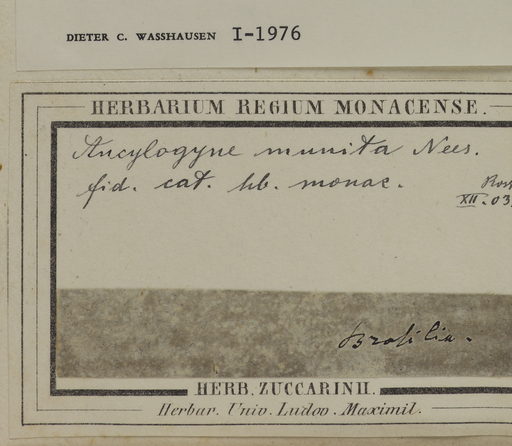 DIETER C. WASSHAUSEN I-1976
HERBARIUM REGIUM MONACENSE.
Ancylogyne munita Nees.
fid. cat. hb. monac.
XII.03
Brasilia.
HERB. ZUCCARINII.
Herbar. Univ. Ludov. Maximil.